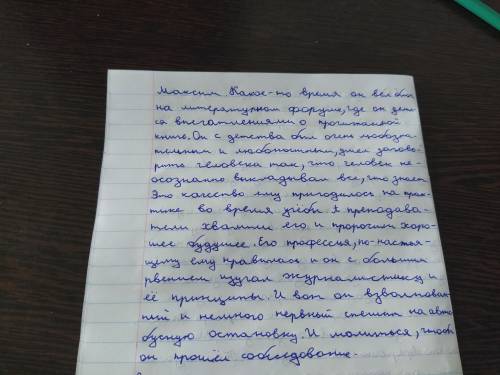 Максим. Какое-то время он вёл был
на литературном форуме, где он дел
ся впечатлениями о прочитанной
книге. Он с детства был очень любозна-
тельным и любопытным, умел загово-
рить человека так, что человек не-
осознанно выкладывал все, что знает.
Это качество ему пригодилось на прак-
тике во время учёбы. А преподава-
тели хвалили его и пророчили хоро-
шее будущее. Его профессия, по-настоя-
щему ему нравилась и он с большим
рвением изучал журналистику и
её принципы. И вот он взволнован-
ный и немного нервный спешит на авто
бусную остановку. И молиться, чтобы
он прошёл собеседование.